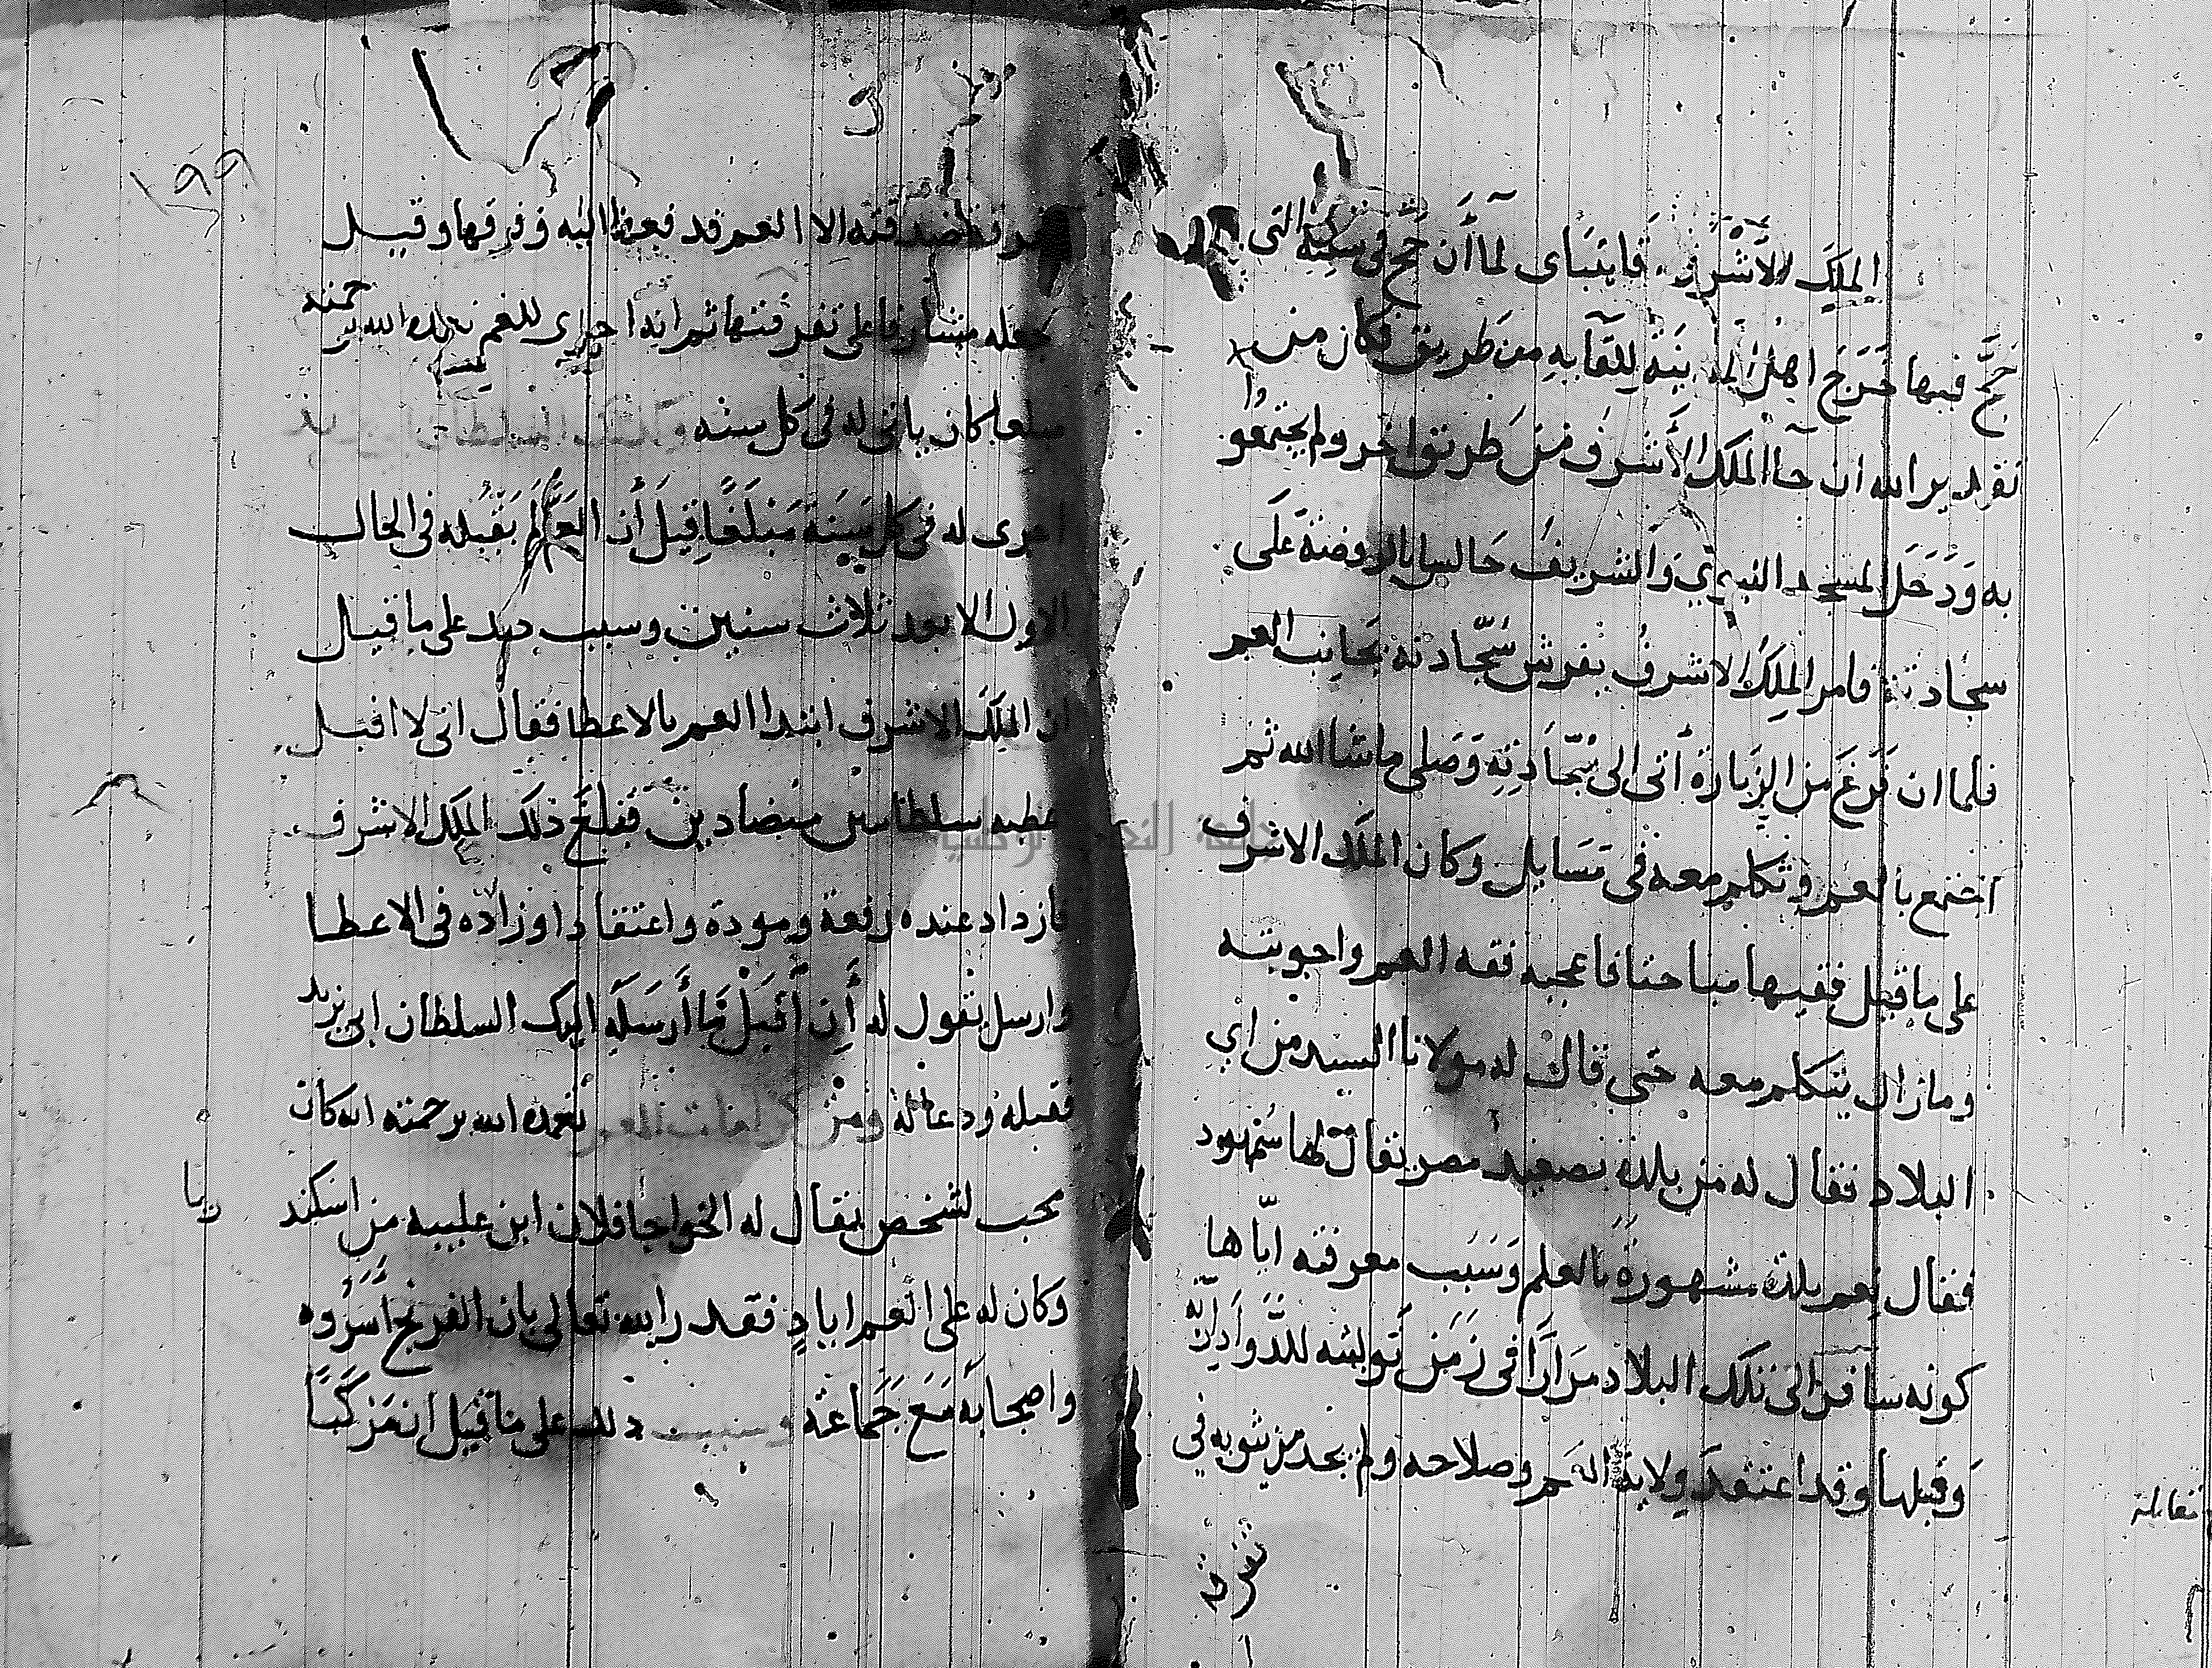 الملك الأشرف قايتباى لمآ أن حج فى سنته التى
حج فيها خرج اهل المدينة للقآيه من طريق فكان من
تقدير الله ان جآ الملك الأشرف من طريق اخر ولم يجتمعوا
به ودخل المسجد النبوي والشريف جالس بالروضة على
سجادته فامر الملك الاشرف بفرش سجادته بجانب العم
فلما ان فرغ من الزيارة أتى الى سجادته وصلى ما شا الله ثم
اجتمع بالعم وتكلم معه فى مسايل وكان الملك الاشرف
على ما قيل فقيها مباحثا فاعجبه فقه العم واجوبته
وما زال يتكلم معه حتى قال له مولانا السيد من اي
البلاد فقال له من بلدة بصعيد مصر يقال لها سمهود
فقال نعم بلدة مشهورة بالعلم وسبب معرفته اياها
كونه سافر الى تلك البلاد مرارا فى زمن توليته للدوادارية
وقبلها وقد اعتقد ولاية العم وصلاحه ولم يجد من يثق به في
تفرقة
مقابلة
١٩٩
صدقته الا العم قد فعها اليه وفرقها وقيل
جعله مشارفا على تفرقتها ثم انه اجرى للعم تغمده الله برحمته
مبلغا كان ياتى له فى كل سنه وكذلك السلطان ابى يزيد
اجرى له فى كل سنة مبلغا قيل أن العم لم يقبله فى الحال
الاول الا بعد ثلاث سنين وسبب ذلك على ما قيل
ان الملك الاشرف ابتدا العم بالاعطا فقال انى لا اقبل
عطية سلطانين متضادين فبلغ ذلك الملك الاشرف
فازداد عنده رفعة ومودة واعتقادا وزاده فى الاعطا
وارسل يقول له أن أقبل ما أرسله اليك السلطان ابى يزيد
فقبله ودعا له ومن كرامات العم تغمده الله برحمته انه كان
محب لشخص يقال له الخواجا فلان ابن عليبه من اسكند
ريا
وكان له على العم اياد فقدر الله تعالى بان الفرنج اسروه
واصحابه مع جماعة وسبب ذلك على ما قيل ان مركبا